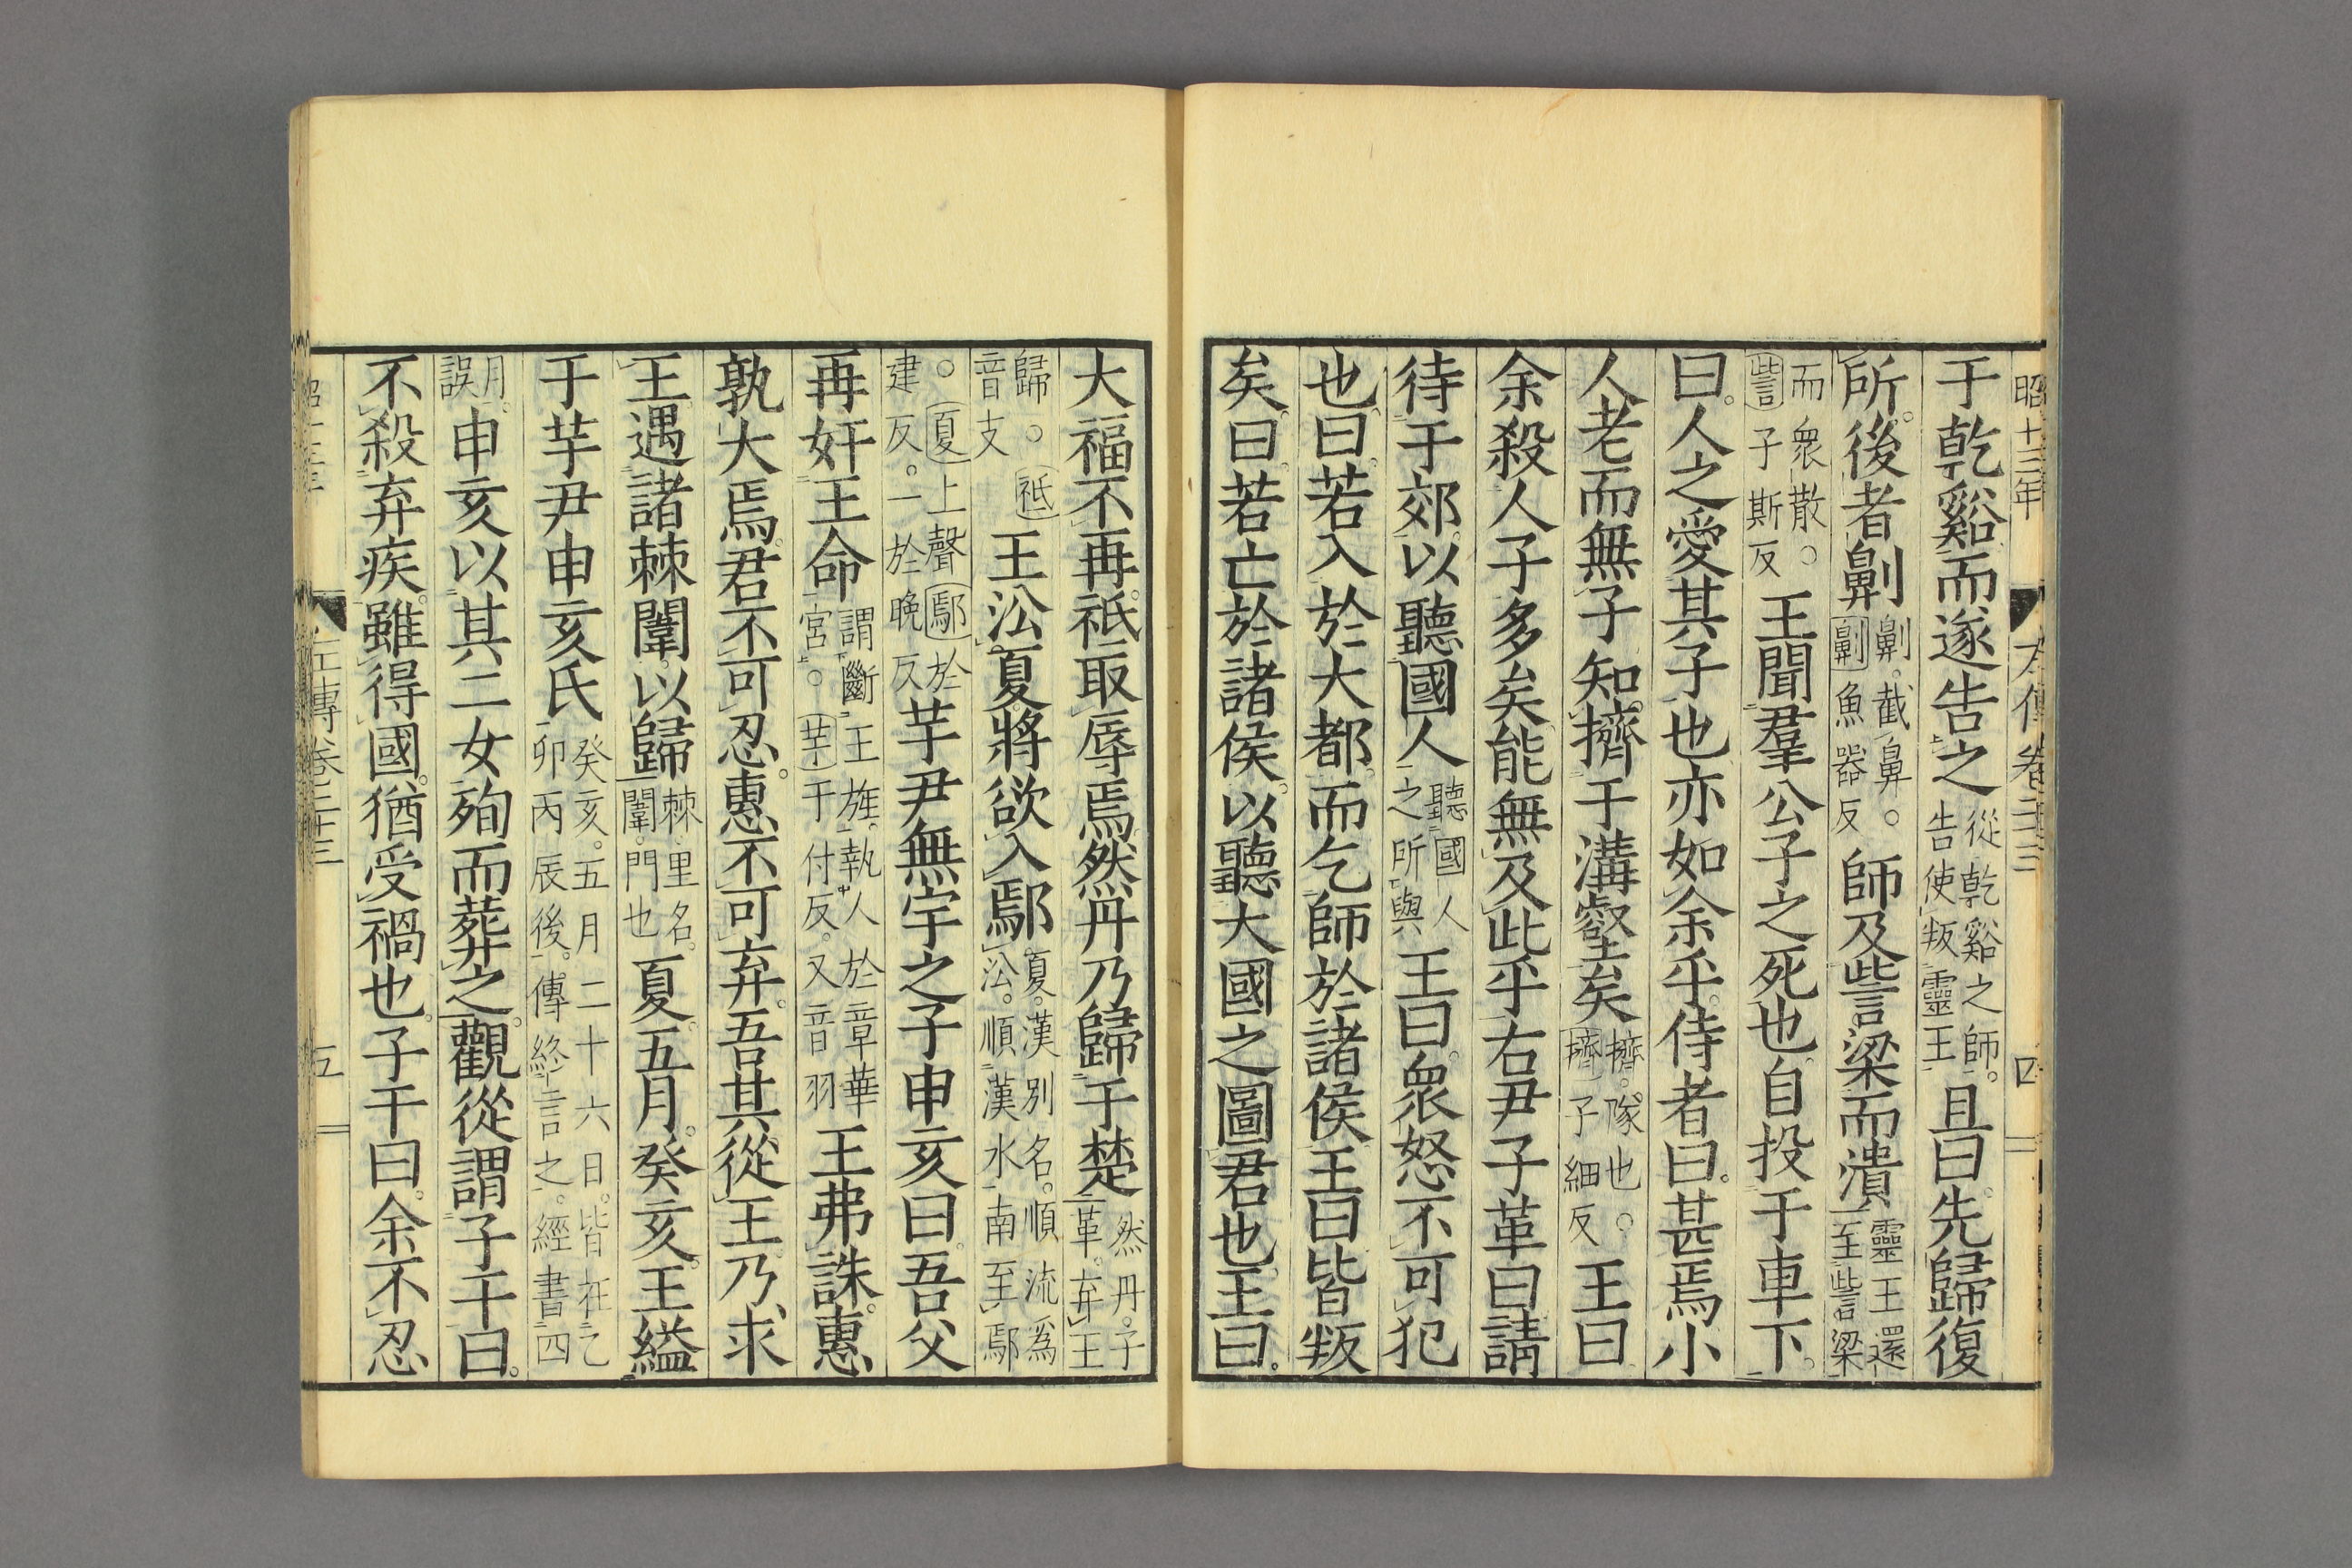 昭十三年
左傳卷二十三
四
于乾谿而遂告之從乾谿之師告使叛靈王且曰先歸復
所後者劓劓截鼻○劓魚器反師及訾梁而潰靈王還至訾梁
而衆散○訾子斯反王聞羣公子之死也自投于車下
曰人之愛其子也亦如余乎侍者曰甚焉小
人老而無子知擠于溝壑矣擠隊也○擠子細反王曰
余殺人子多矣能無及此乎右尹子革曰請
待于郊以聽國人聽國人之所與王曰衆怒不可犯
也曰若入於大都而乞師於諸侯王曰皆叛
矣曰若亡於諸侯以聽大國之圖君也王曰
大福不再祇取辱焉然丹乃歸于楚然丹子革弃王
歸○祇音支王沿夏將欲入鄢夏漢別名順流爲沿順漢水南至鄢
○夏上聲鄢於建反一於晚反芋尹無宇之子申亥曰吾父
再奸王命謂斷王旌執人於章華宮○芋于付反又音羽王弗誅惠
孰大焉君不可忍惠不可弃吾其從王乃求
王遇諸棘闈以歸棘里名闈門也夏五月癸亥王縊
于芋尹申亥氏癸亥五月二十六日皆在乙卯丙辰後傳終言之經書四
月誤申亥以其二女殉而葬之觀從謂子干曰
不殺弃疾雖得國猶受禍也子干曰余不忍
左傳卷二十三
五